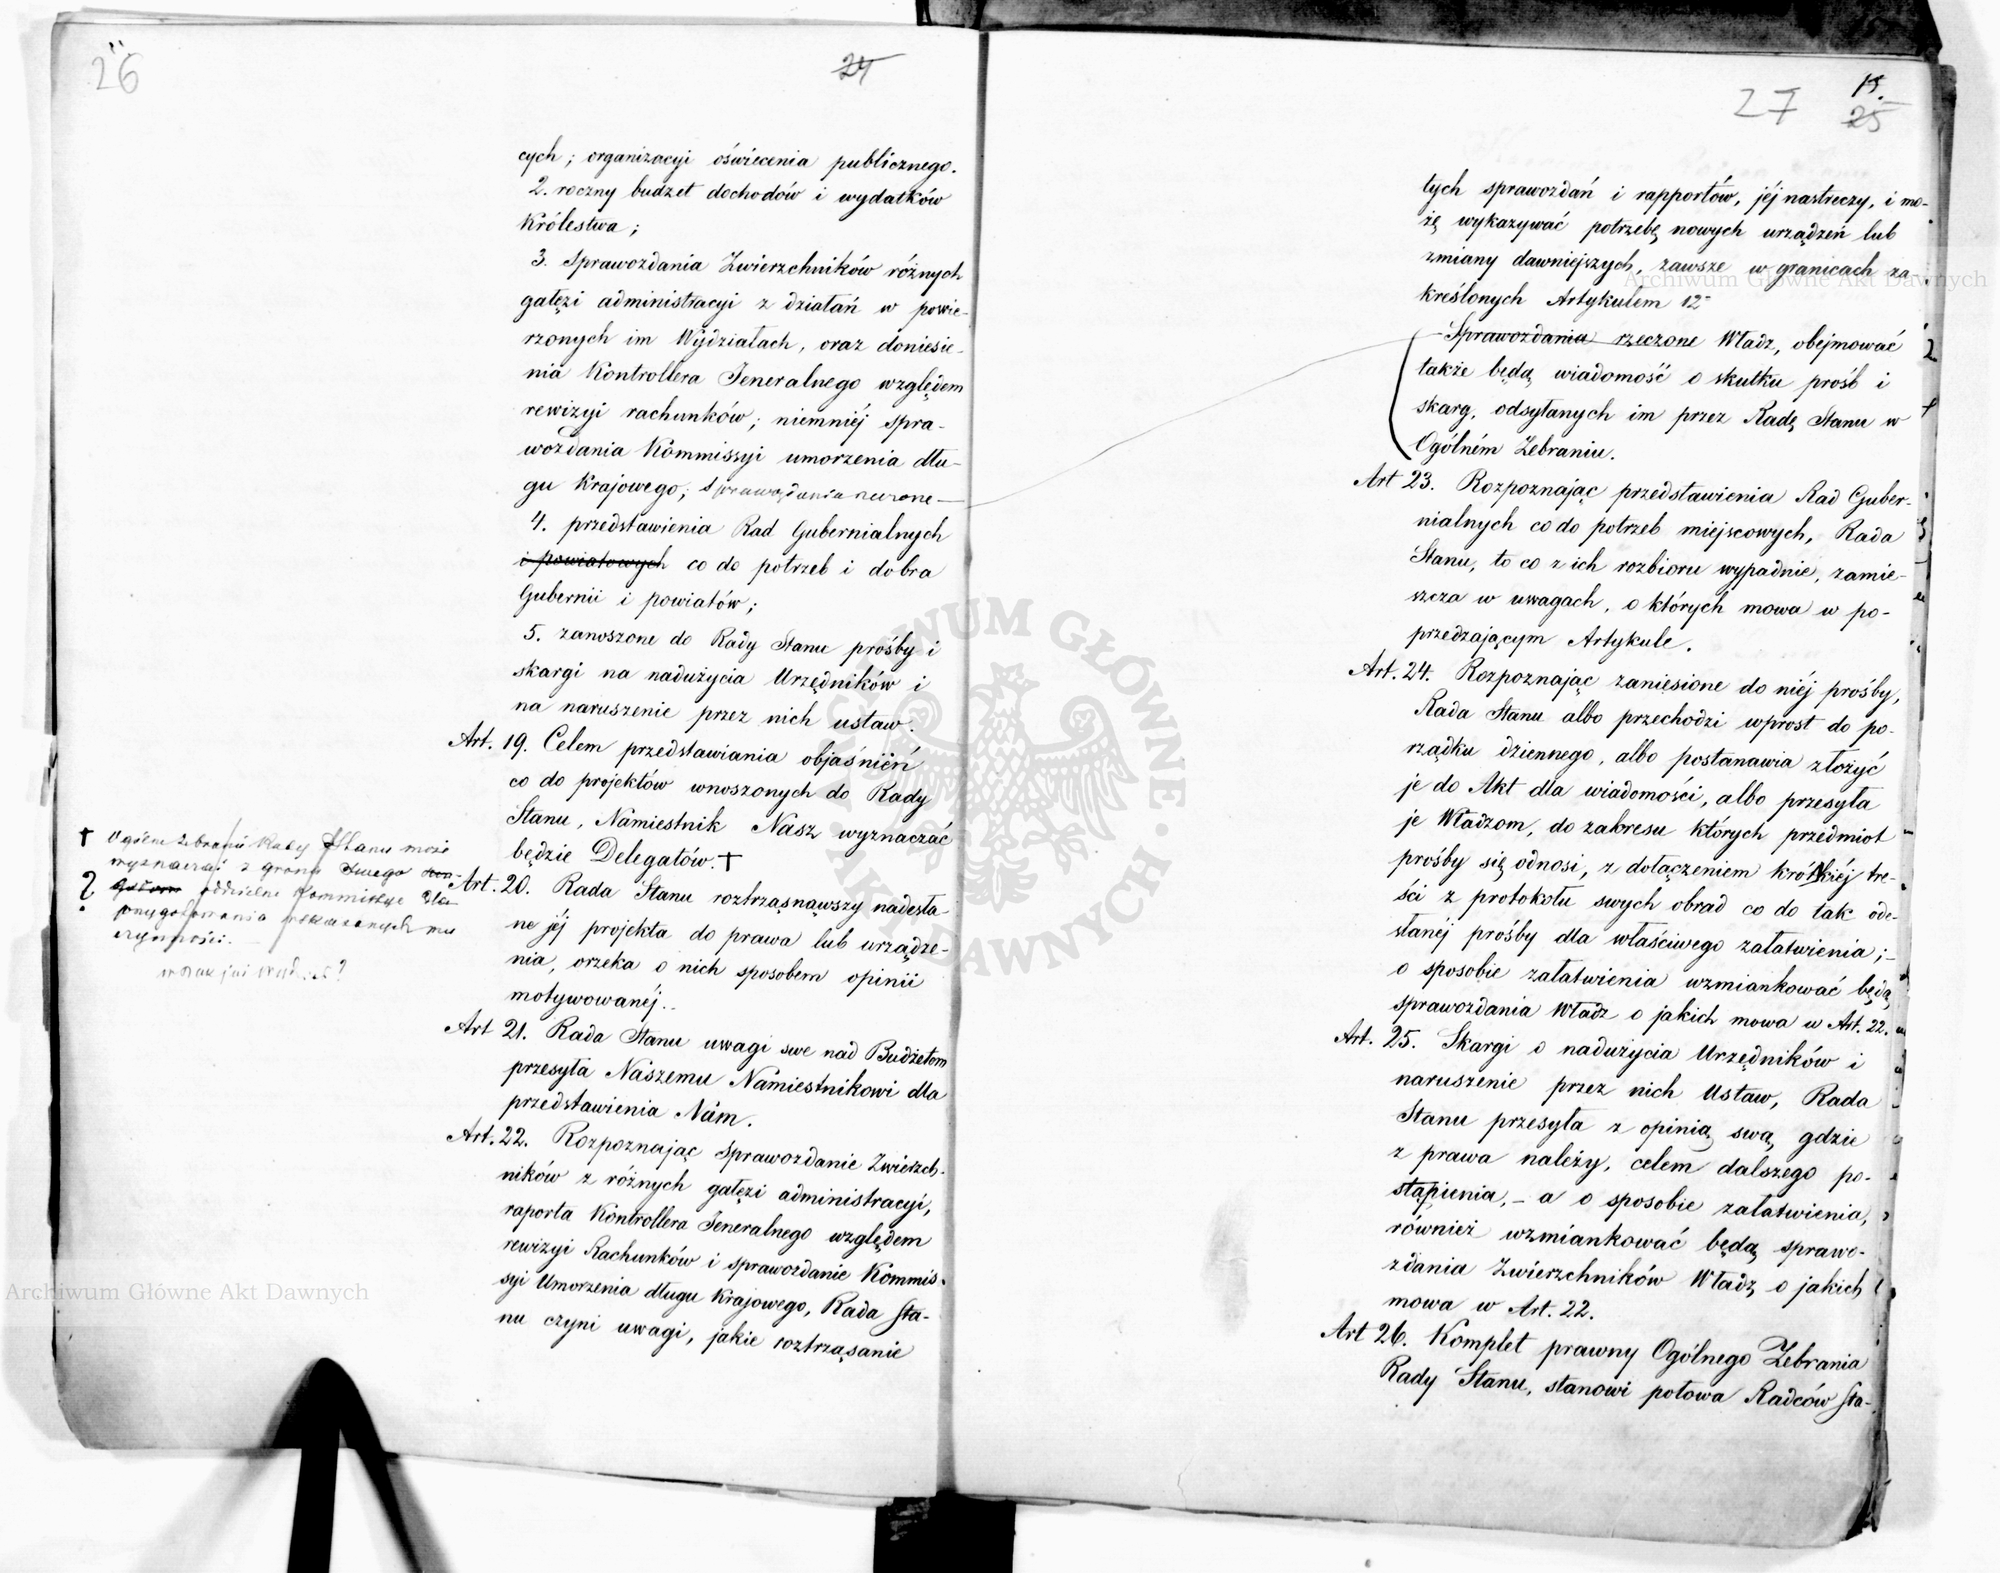 26
24
cych; organizacyi oświecenia publicznego.
2. roczny budżet dochodów i wydatków
Królestwa;
3. Sprawozdania Zwierzchników różnych
gałęzi administracyi z działań w powie-
rzonych im Wydziałach, oraz doniesie-
nia Kontrollera Jeneralnego względem
rewizyi rachunków; niemniéj spra-
wozdania Kommissyi umorzenia dłu-
gu Krajowego; sprawozdania rzeczone
4. przedstawienia Rad Gubernialnych
i powiatowych co do potrzeb i dobra
Gubernii i powiatów;
5. zanoszone do Rady Stanu prośby i
skargi na nadużycia Urzędników i
na naruszenie przez nich ustaw.
Art. 19. Celem przedstawiania objaśnień
co do projektów wnoszonych do Rady
Stanu, Namiestnik Nasz wyznaczać
będzie Delegatów. †
† Ogólne Zebranie Rady Stanu może
wyznaczać z grona swego
? oddzielne Kommissye dla
przygotowania wskazanych mu
czynności.
Art. 20. Rada Stanu roztrząsnąwszy nadesła-
ne jéj projekta do prawa lub urządze-
nia, orzeka o nich sposobem opinii
motywowanéj.
Art 21. Rada Stanu uwagi swe nad Budżetem
przesyła Naszemu Namiestnikowi dla
przedstawienia Nam.
Art. 22. Rozpoznając Sprawozdanie Zwierzch-
ników z różnych gałęzi administracyi,
raporta Kontrollera Jeneralnego względem
rewizyi Rachunków i sprawozdanie Kommis-
syi Umorzenia długu Krajowego, Rada Sta-
nu czyni uwagi, jakie roztrząsanie
27
15.
25
tych sprawozdań i rapportów, jéj nastręczy, i mo-
żę wykazywać potrzebę nowych urządzeń lub
zmiany dawniejszych, zawsze w granicach za-
kreślonych Artykułem 12
Sprawozdania rzeczone Władz, obejmować
także będą wiadomość o skutku próśb i
skarg, odsyłanych im przez Radę Stanu w
Ogólném Zebraniu.
Art 23. Rozpoznając przedstawienia Rad Guber-
nialnych co do potrzeb miejscowych, Rada
Stanu, to co z ich rozbioru wypadnie, zamie-
szcza w uwagach, o których mowa w po-
przedzającym Artykule.
Art. 24. Rozpoznając zaniesione do niéj prośby,
Rada Stanu albo przechodzi wprost do po-
rządku dziennego, albo postanawia złożyć
je do Akt dla wiadomości, albo przesyła
je Władzom, do zakresu których przedmiot
prośby się odnosi, z dołączeniem krótkiéj tre-
ści z protokołu swych obrad co do tak ode-
słanéj prośby dla właściwego załatwienia;
o sposobie załatwienia wzmiankować będą
sprawozdania Władz o jakich mowa w Art. 22.
Art. 25. Skargi o nadużycia Urzędników i
naruszenie przez nich Ustaw, Rada
Stanu przesyła z opinią swą, gdzie
z prawa należy, celem dalszego po-
stąpienia, – a o sposobie załatwienia,
również wzmiankować będą sprawo-
zdania Zwierzchników Władz o jakich
mowa w Art. 22.
Art 26. Komplet prawny Ogólnego Zebrania
Rady Stanu, stanowi połowa Radców Sta-
ARCHIWUM GŁÓWNE AKT DAWNYCH
Archiwum Główne Akt Dawnych
Archiwum Główne Akt Dawnych